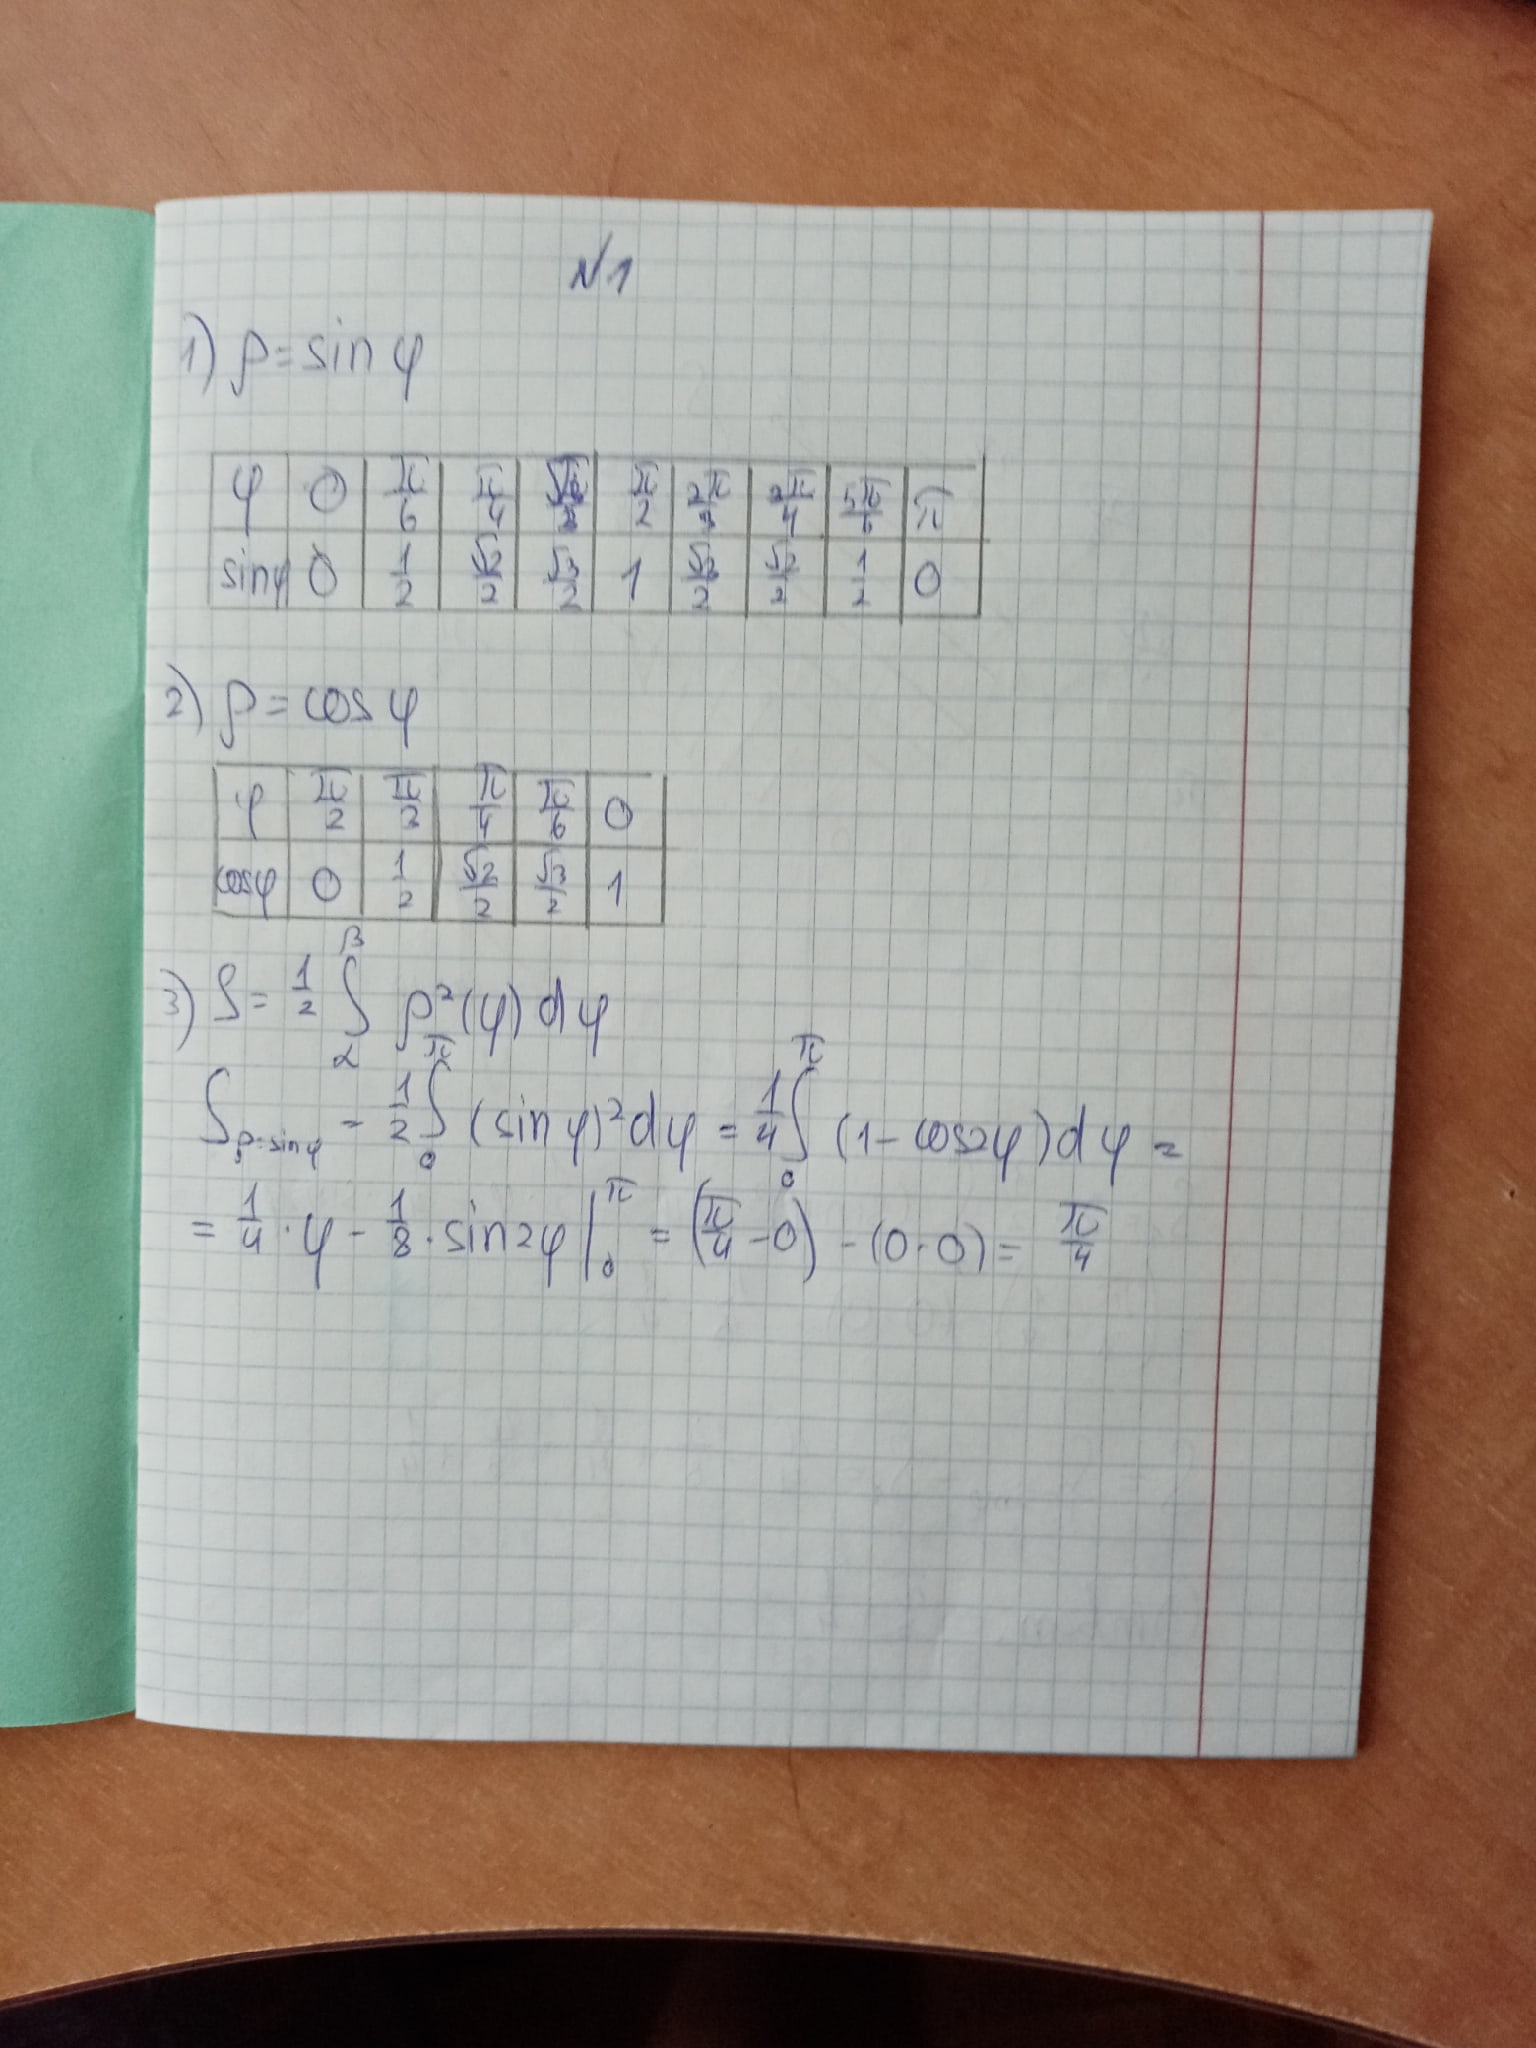 N1
1) ρ = sin φ
φ 0 π/6 π/4 π/2 2π/3 3π/4 5π/6 π
sinφ 0 1/2 √2/2 √3/2 1 √2/2 1/2 0
2) ρ = cos φ
φ π/2 π/4 π/6 0
cosφ 0 1/2 √2/2 √3/2 1
3) S = 1/2 ∫_α^β ρ²(φ) dφ
S_ρ=sinφ = 1/2 ∫_0^π (sin φ)² dφ = 1/4 ∫_0^π (1 - cos2φ) dφ =
= 1/4 · φ - 1/8 · sin2φ |_0^π = (π/4 - 0) - (0 · 0) = π/4